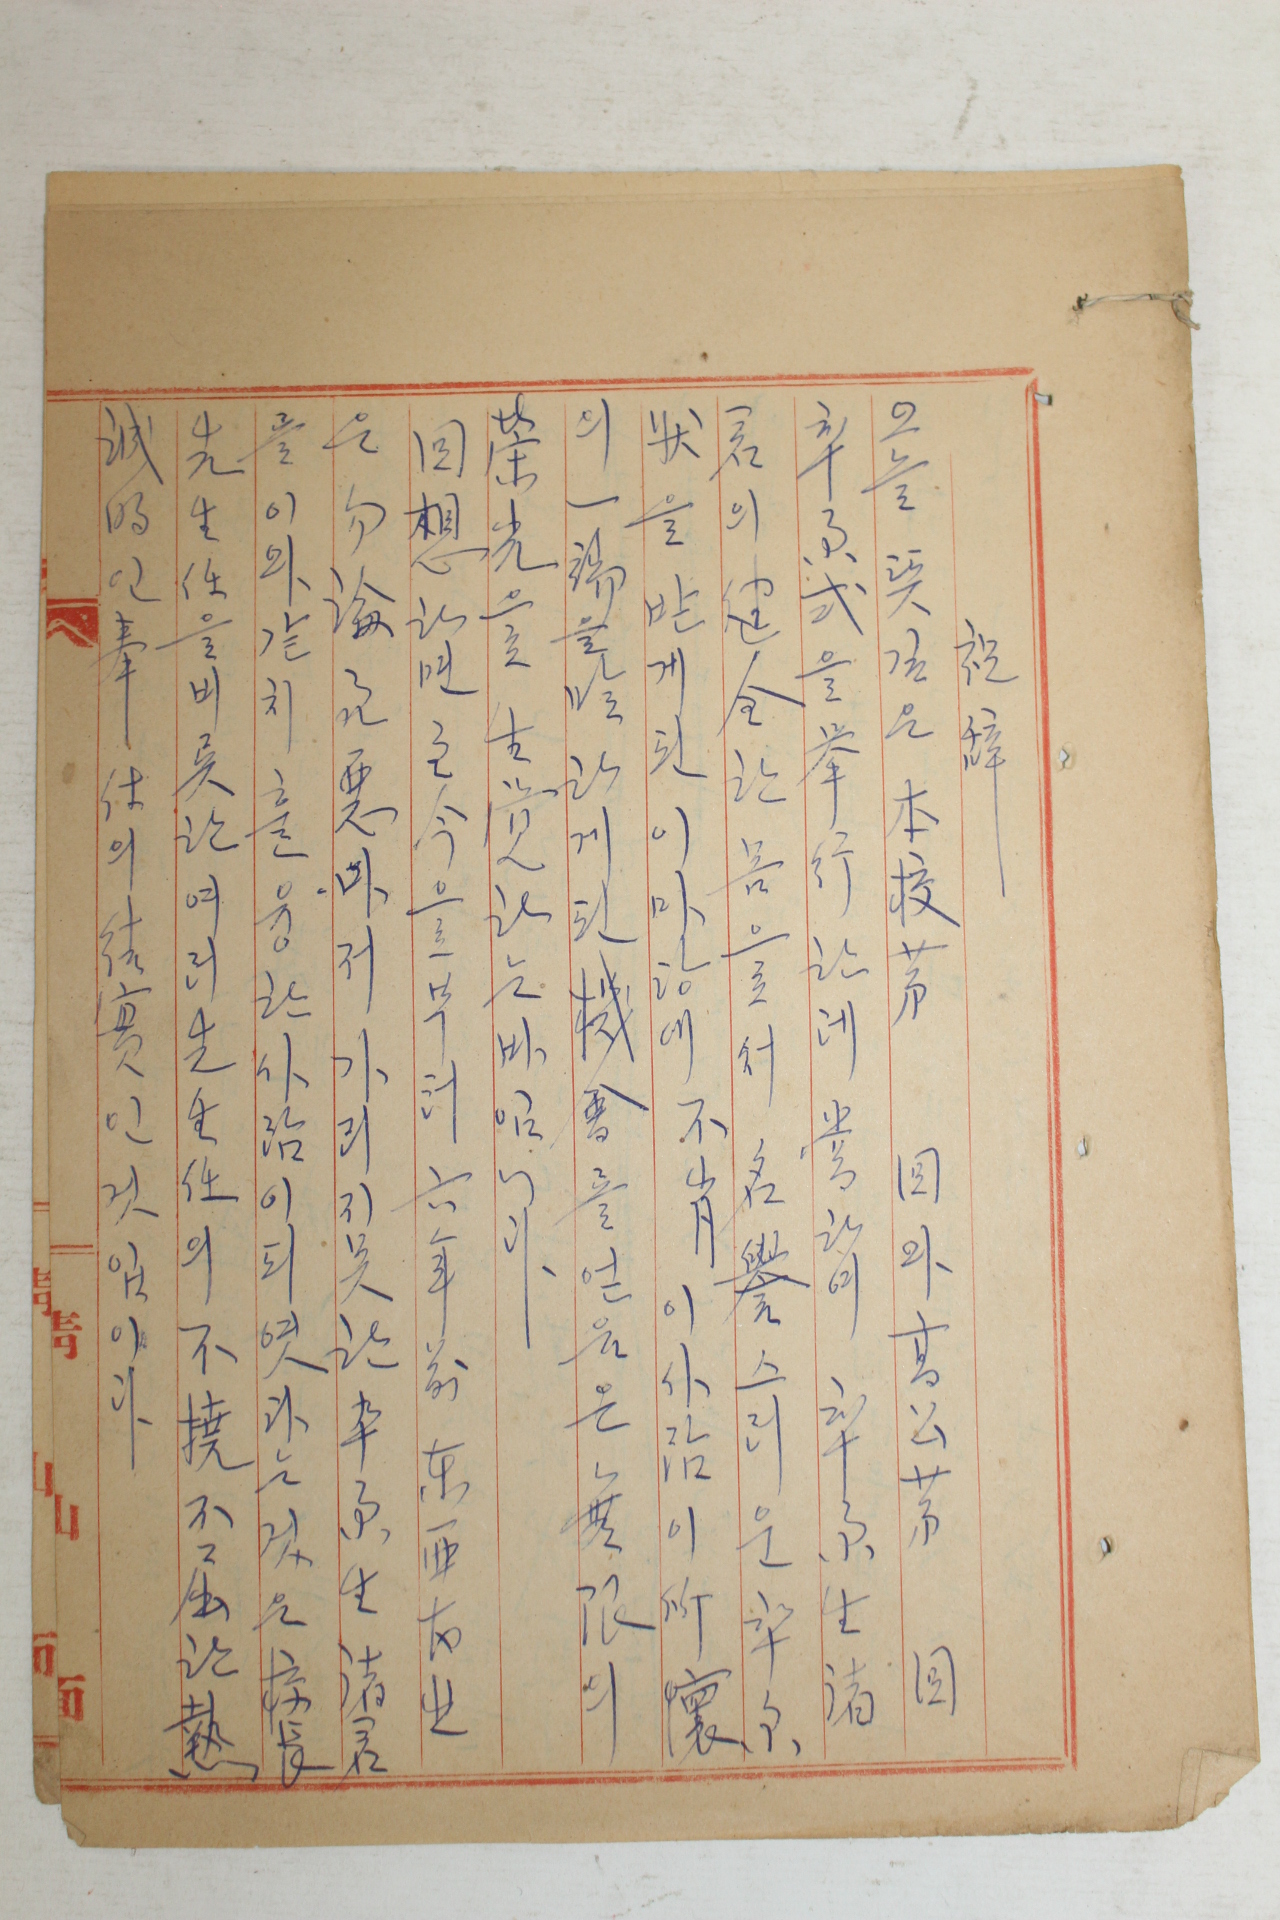 祝辞
오늘 뜻깊은 本校 第 回와 高公第 回
卒業式을 擧行한데 當하여 卒業生 諸
君의 健全한 몸으로서 名譽스러운 卒業
狀을 받게된 이마당에 不肖 이사람이 所懷
의 一端을 말하게된 機會를 얻음은 無限의
榮光으로 生覺하는바임니다
回想하면 至今으로부터 六年前 東西南北
은 勿論 善惡마저 가리지못한 卒業生 諸君
들이 와같치 훌융한 사람이 되엿다는것은 校長
先生任을 비롯한 여러先生任의 不撓不屈한 熱
誠的인 奉仕의 結實인것임이다
面
面